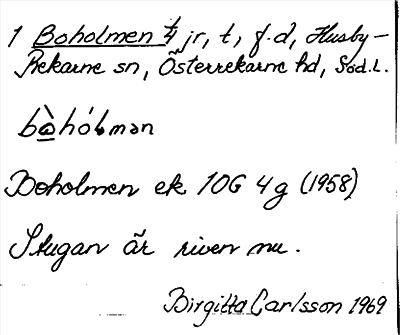 1 Boholmen 1/4 jr, t, f.d, Husby-
Rekarne sn, Österrekarne hd, Söd.l.
bòhólmən
Boholmen ek 10G 4g (1958)
Stugan är riven nu.
Birgitta Carlsson 1969